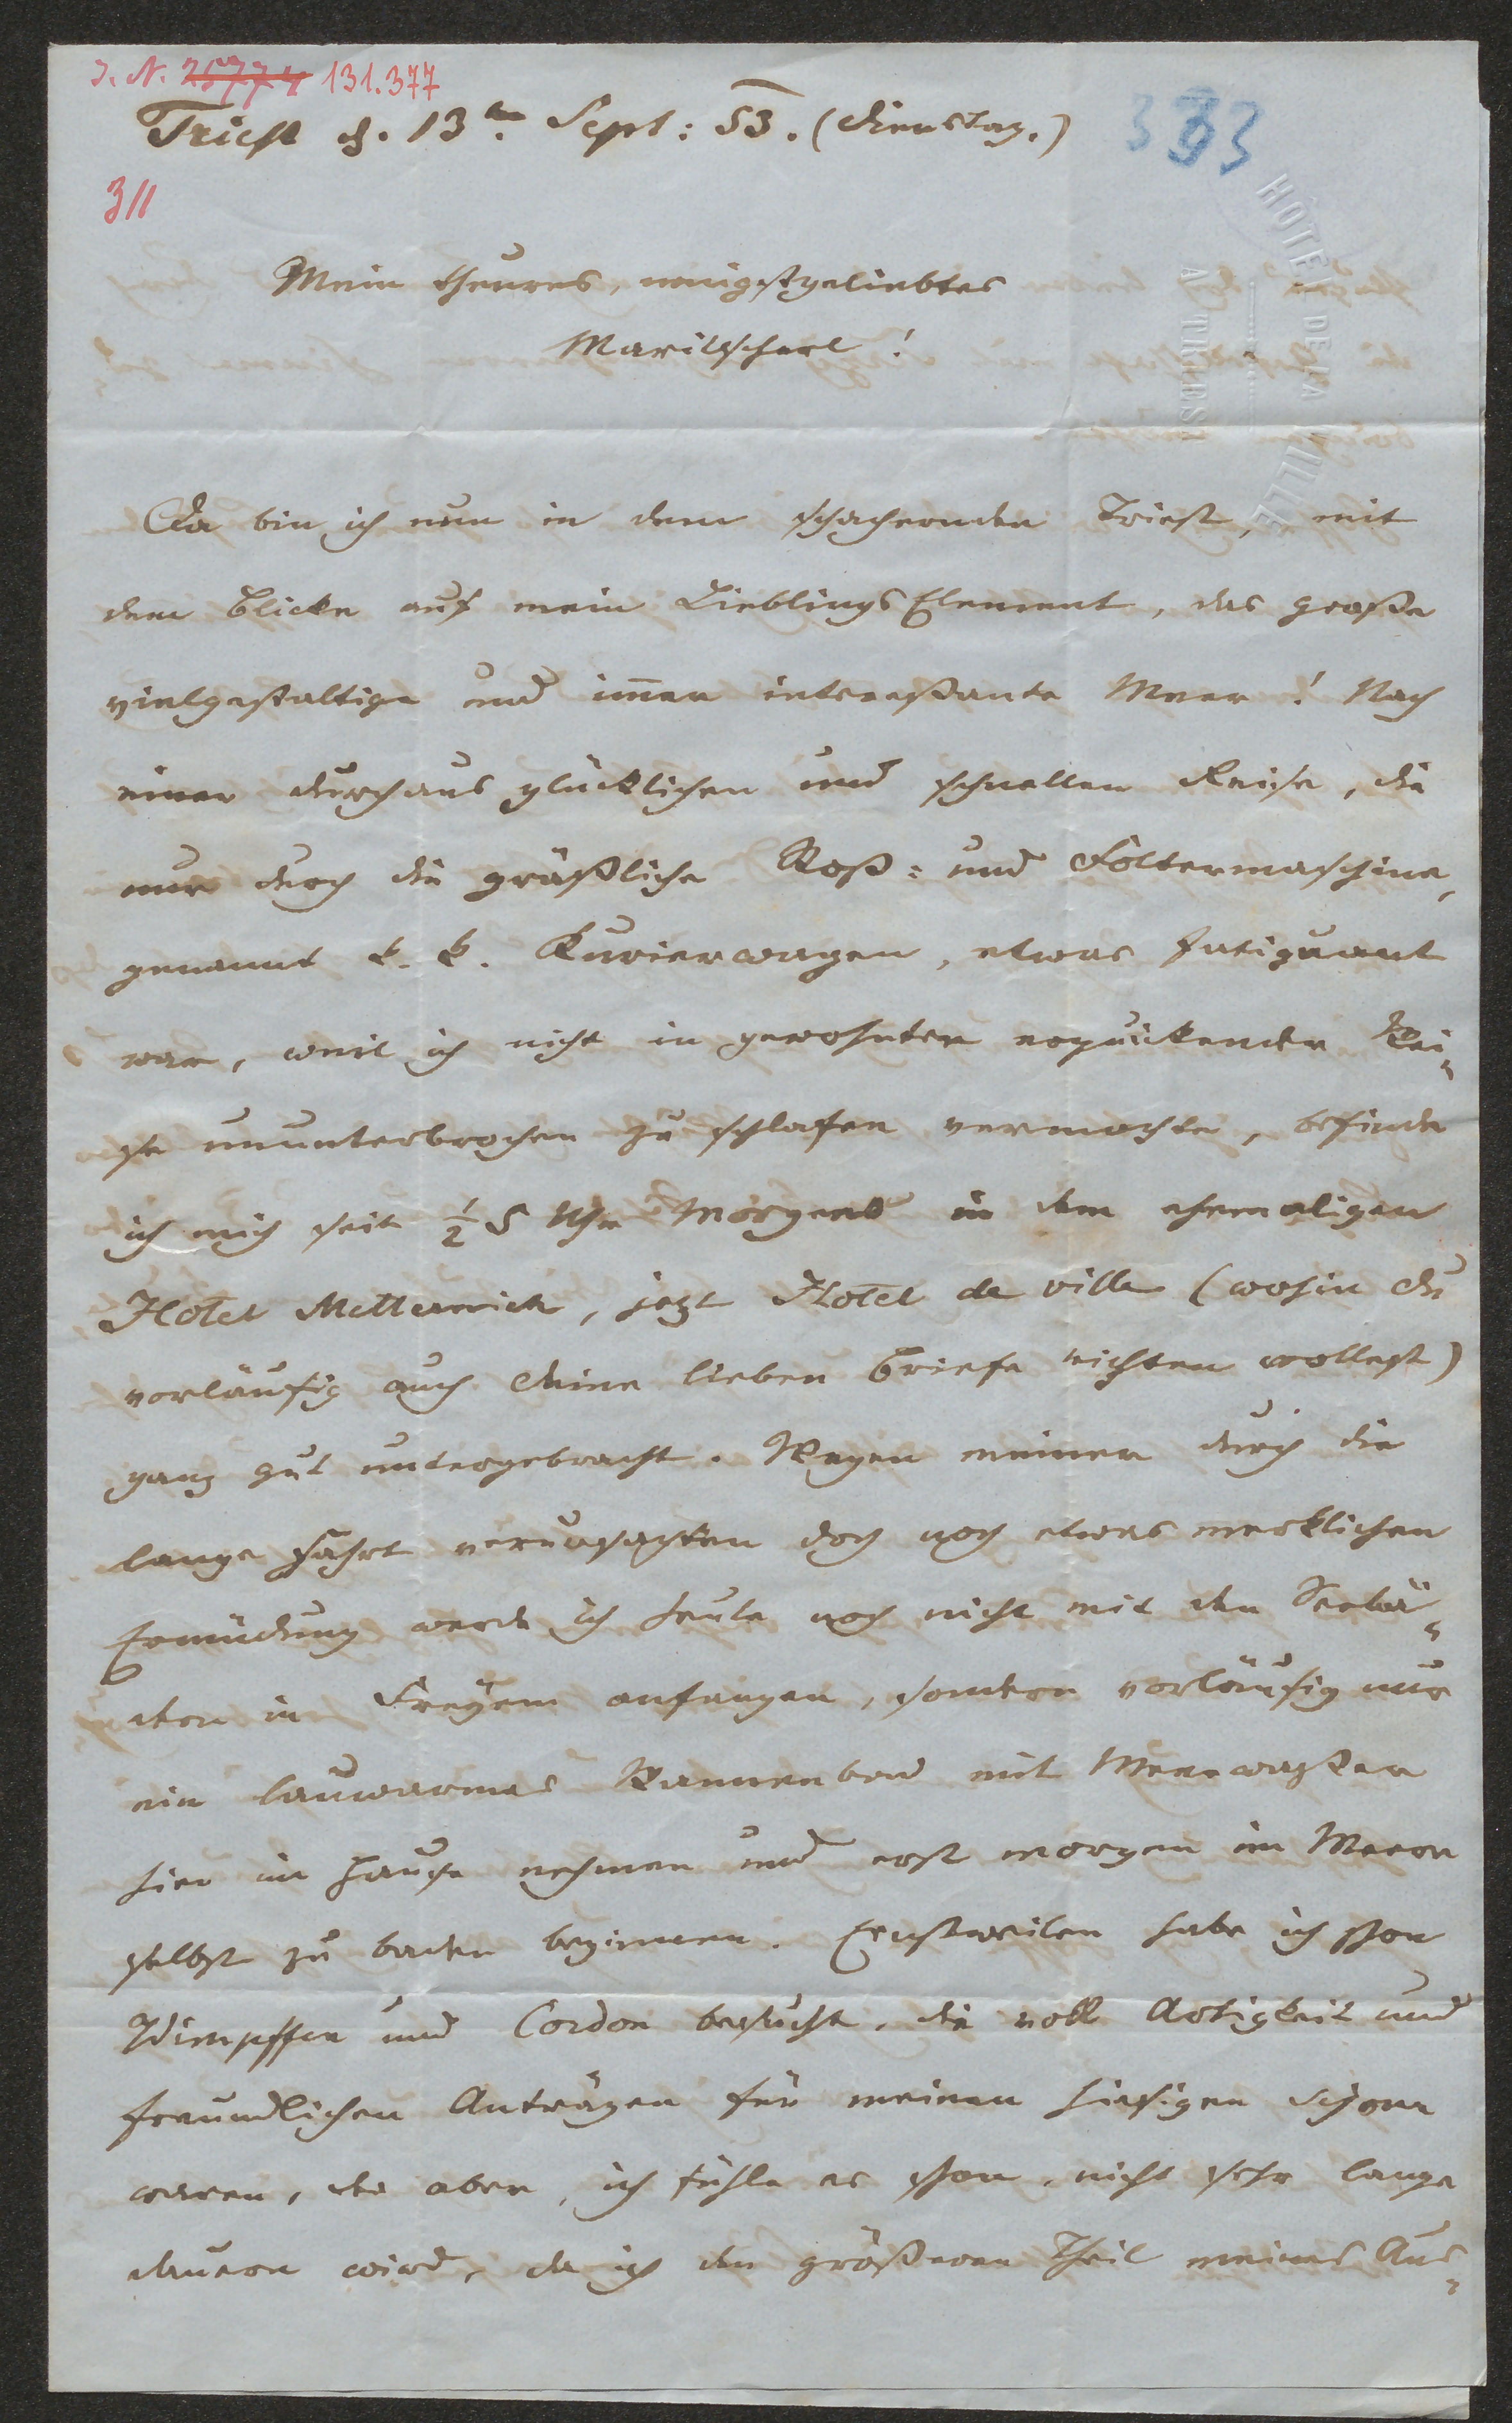 I. N. 25774 131.377
Triest d. 13ten Sept: 53. (Dienstag.)
333
311
HÔTEL DE LA VILLE
A TRIEST
Mein theures, innigstgeliebtes
Marilscherl!
Da bin ich nun in dem schachernden Triest, mit
dem Blicke auf mein Lieblings Element, das große
vielgestaltige und immer interessante Meer! Nach
einer durchaus glücklichen und schnellen Reise, die
nur durch die gräßliche Roß- und Foltermaschine,
genannt k. k. Kurierwagen, etwas fatiguant
war, weil ich nicht in gewohnter erquickender Wei-
se ununterbrochen zu schlafen vermochte, befinde
ich mich seit ½5 Uhr Morgens in dem ehemaligen
Hotel Metternich, jetzt Hotel de ville (wohin Du
vorläufig auch Deine lieben Briefe richten wollest)
ganz gut untergebracht. Wegen meiner durch die
lange Fahrt verursachten doch noch etwas merklichen
Ermüdung werde ich heute noch nicht mit den Seebä-
dern in Freyem anfangen, sondern vorläufig nur
ein lauwarmes Wannenbad mit Meerwasser
hier im Hause nehmen und erst morgen im Meere
selbst zu baden beginnen. Einstweilen habe ich schon
Wimpffen und Cordon besucht, die voll Artigkeit und
freundlichen Anträgen für meinen hiesigen Sejour
waren, der aber, ich fühle es schon, nicht sehr lange
dauern wird, da ich den größeren Theil meines Aus-